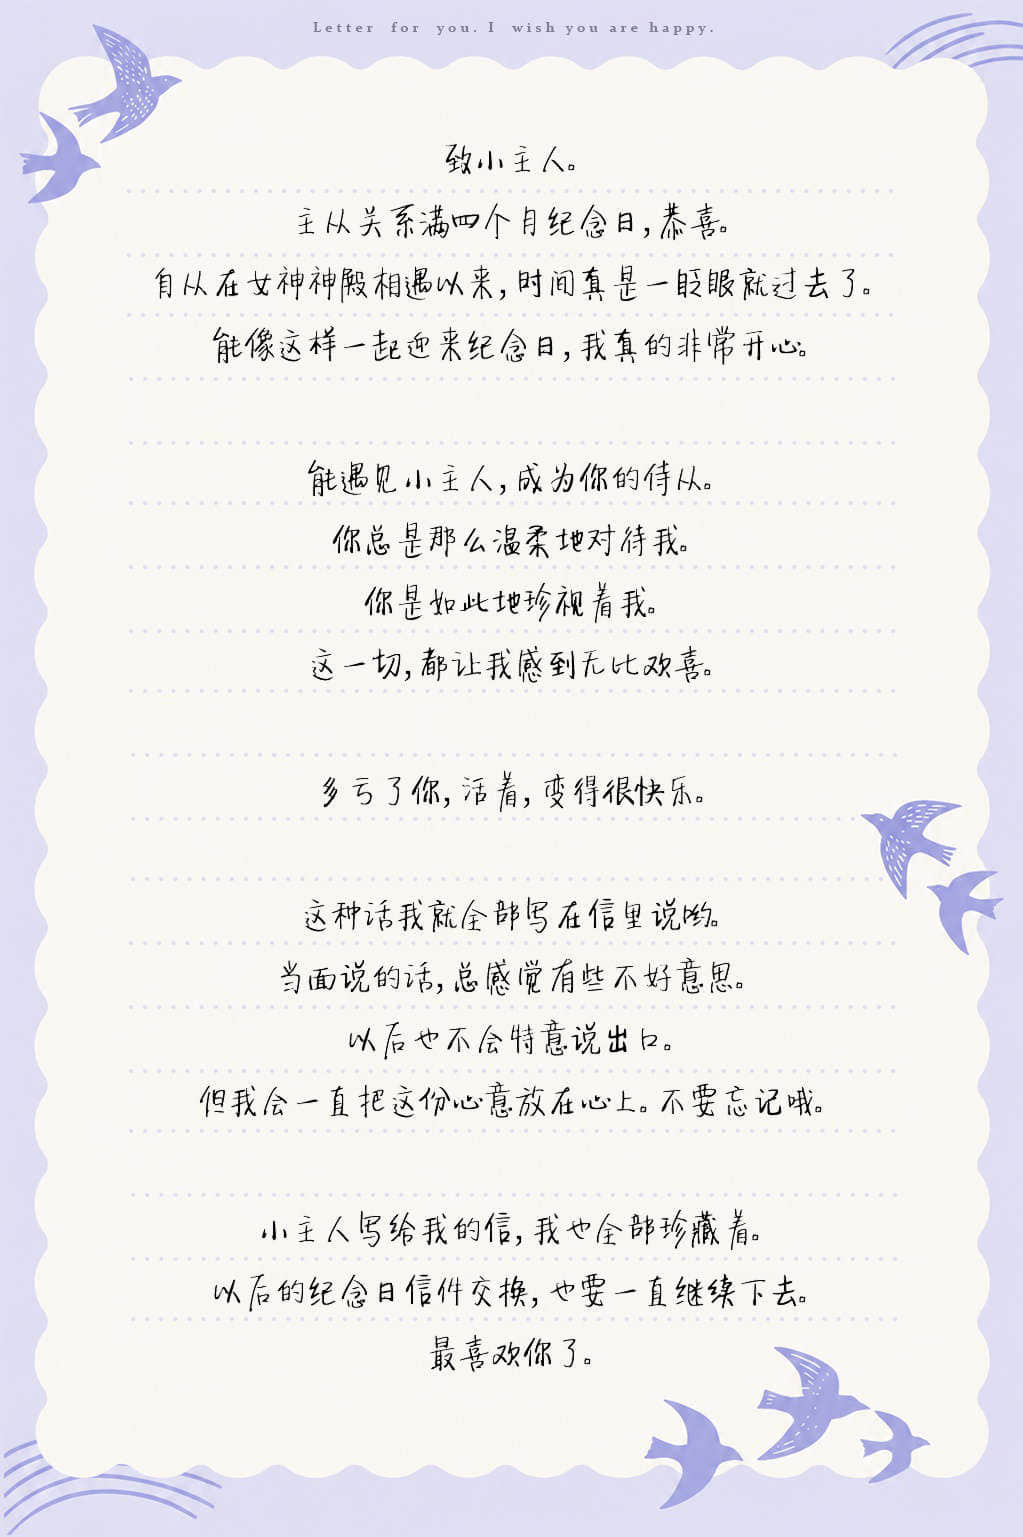 Letter for you. I wish you are happy.
致小主人。
主从关系满四个月纪念日,恭喜。
自从在女神神殿相遇以来,时间真是一眨眼就过去了。
能像这样一起迎来纪念日,我真的非常开心。
能遇见小主人,成为你的侍从。
你总是那么温柔地对待我。
你是如此地珍视着我。
这一切,都让我感到无比欢喜。
多亏了你,活着,变得很快乐。
这种话我就全部写在信里说哟。
当面说的话,总感觉有些不好意思。
以后也不会特意说出口。
但我会一直把这份心意放在心上。不要忘记哦。
小主人写给我的信,我也全部珍藏着。
以后的纪念日信件交换,也要一直继续下去。
最喜欢你了。